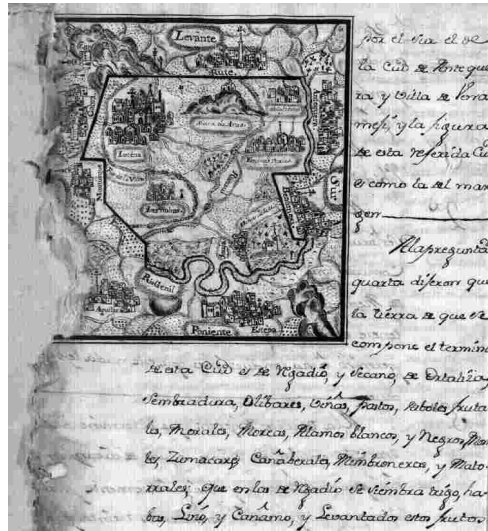 Levante
Rute
Lucena
Sierra de Aras
Poniente
Estepa
por el Sur el de
la Ciud de Antequе
ra y Villa de Vena
mejí, y la figura
de esta referida Ciu
es como la del mar
gen
A la pregunta
quarta dijeron que
la tierra de que se
compone el termino
de esta Ciud es de Rgadio, y Secano, de Ortaliza,
Sembradura, Olibares, Viñas, pastos, Arboles fruta
les, Morales, Moreras, Alamos blancos, y Negros,
les, Zumacares Cañaberales, Mimbroneros, y Mato
rrales; Que en las de Rgadio se siembra trigo, ha
bas, Lino, y Cañamo, y Levantados estos frutos